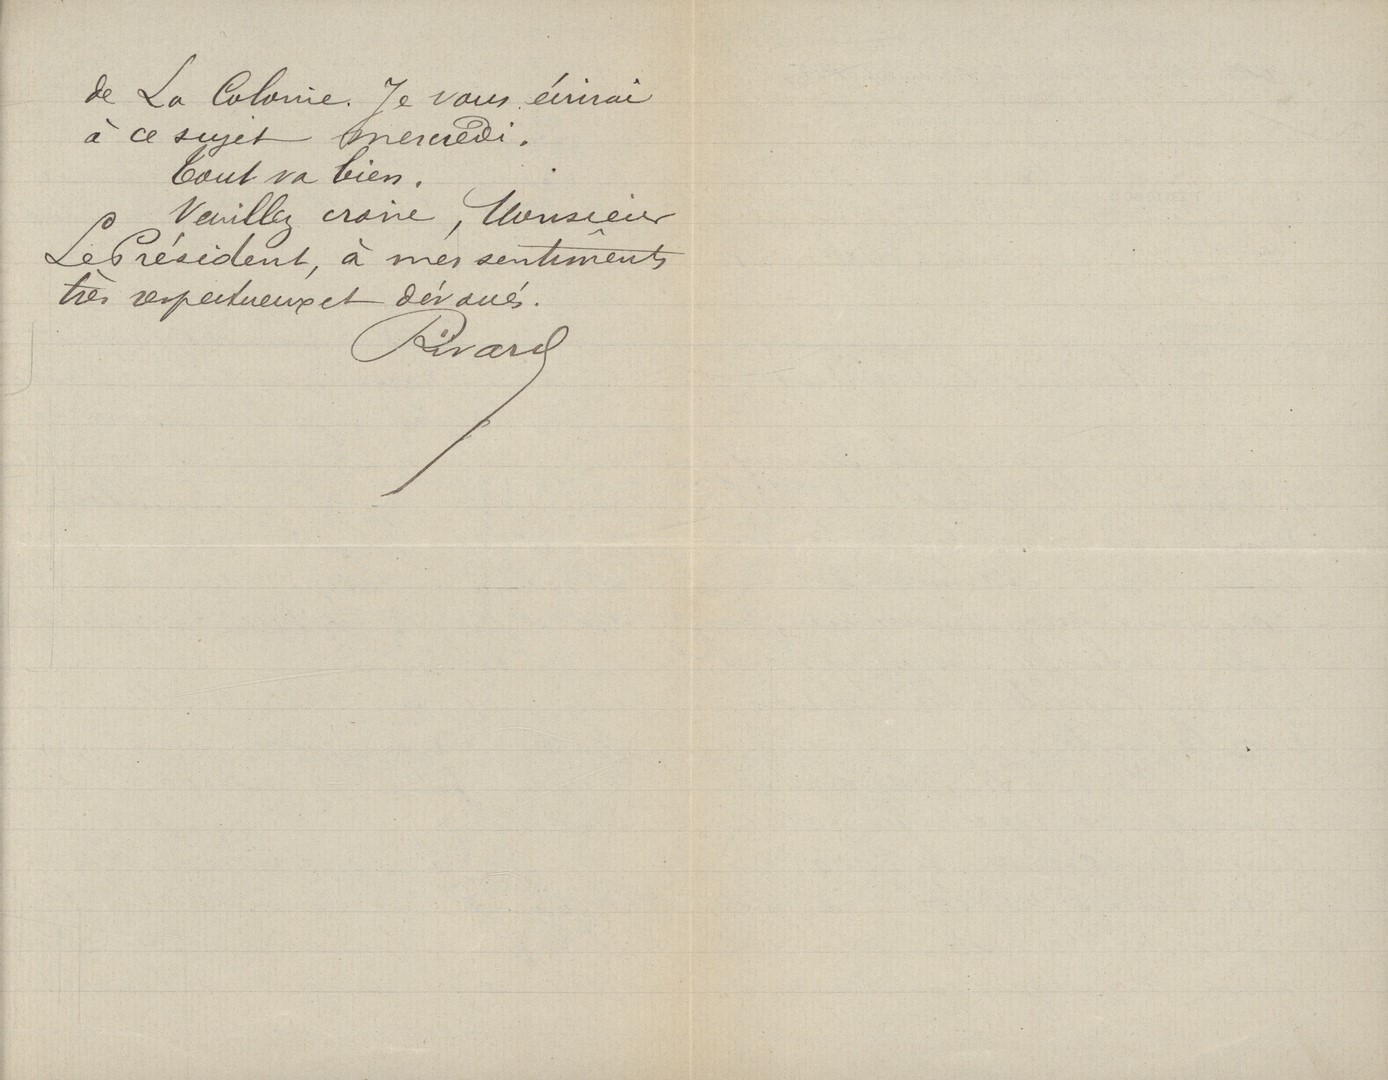 de La Colonie. Je vous écrirai
à ce sujet mercredi.
Tout va bien.
Veuillez croire, Monsieur
Le Président, à mes sentiments
très respectueux et dévoués.
Rivard